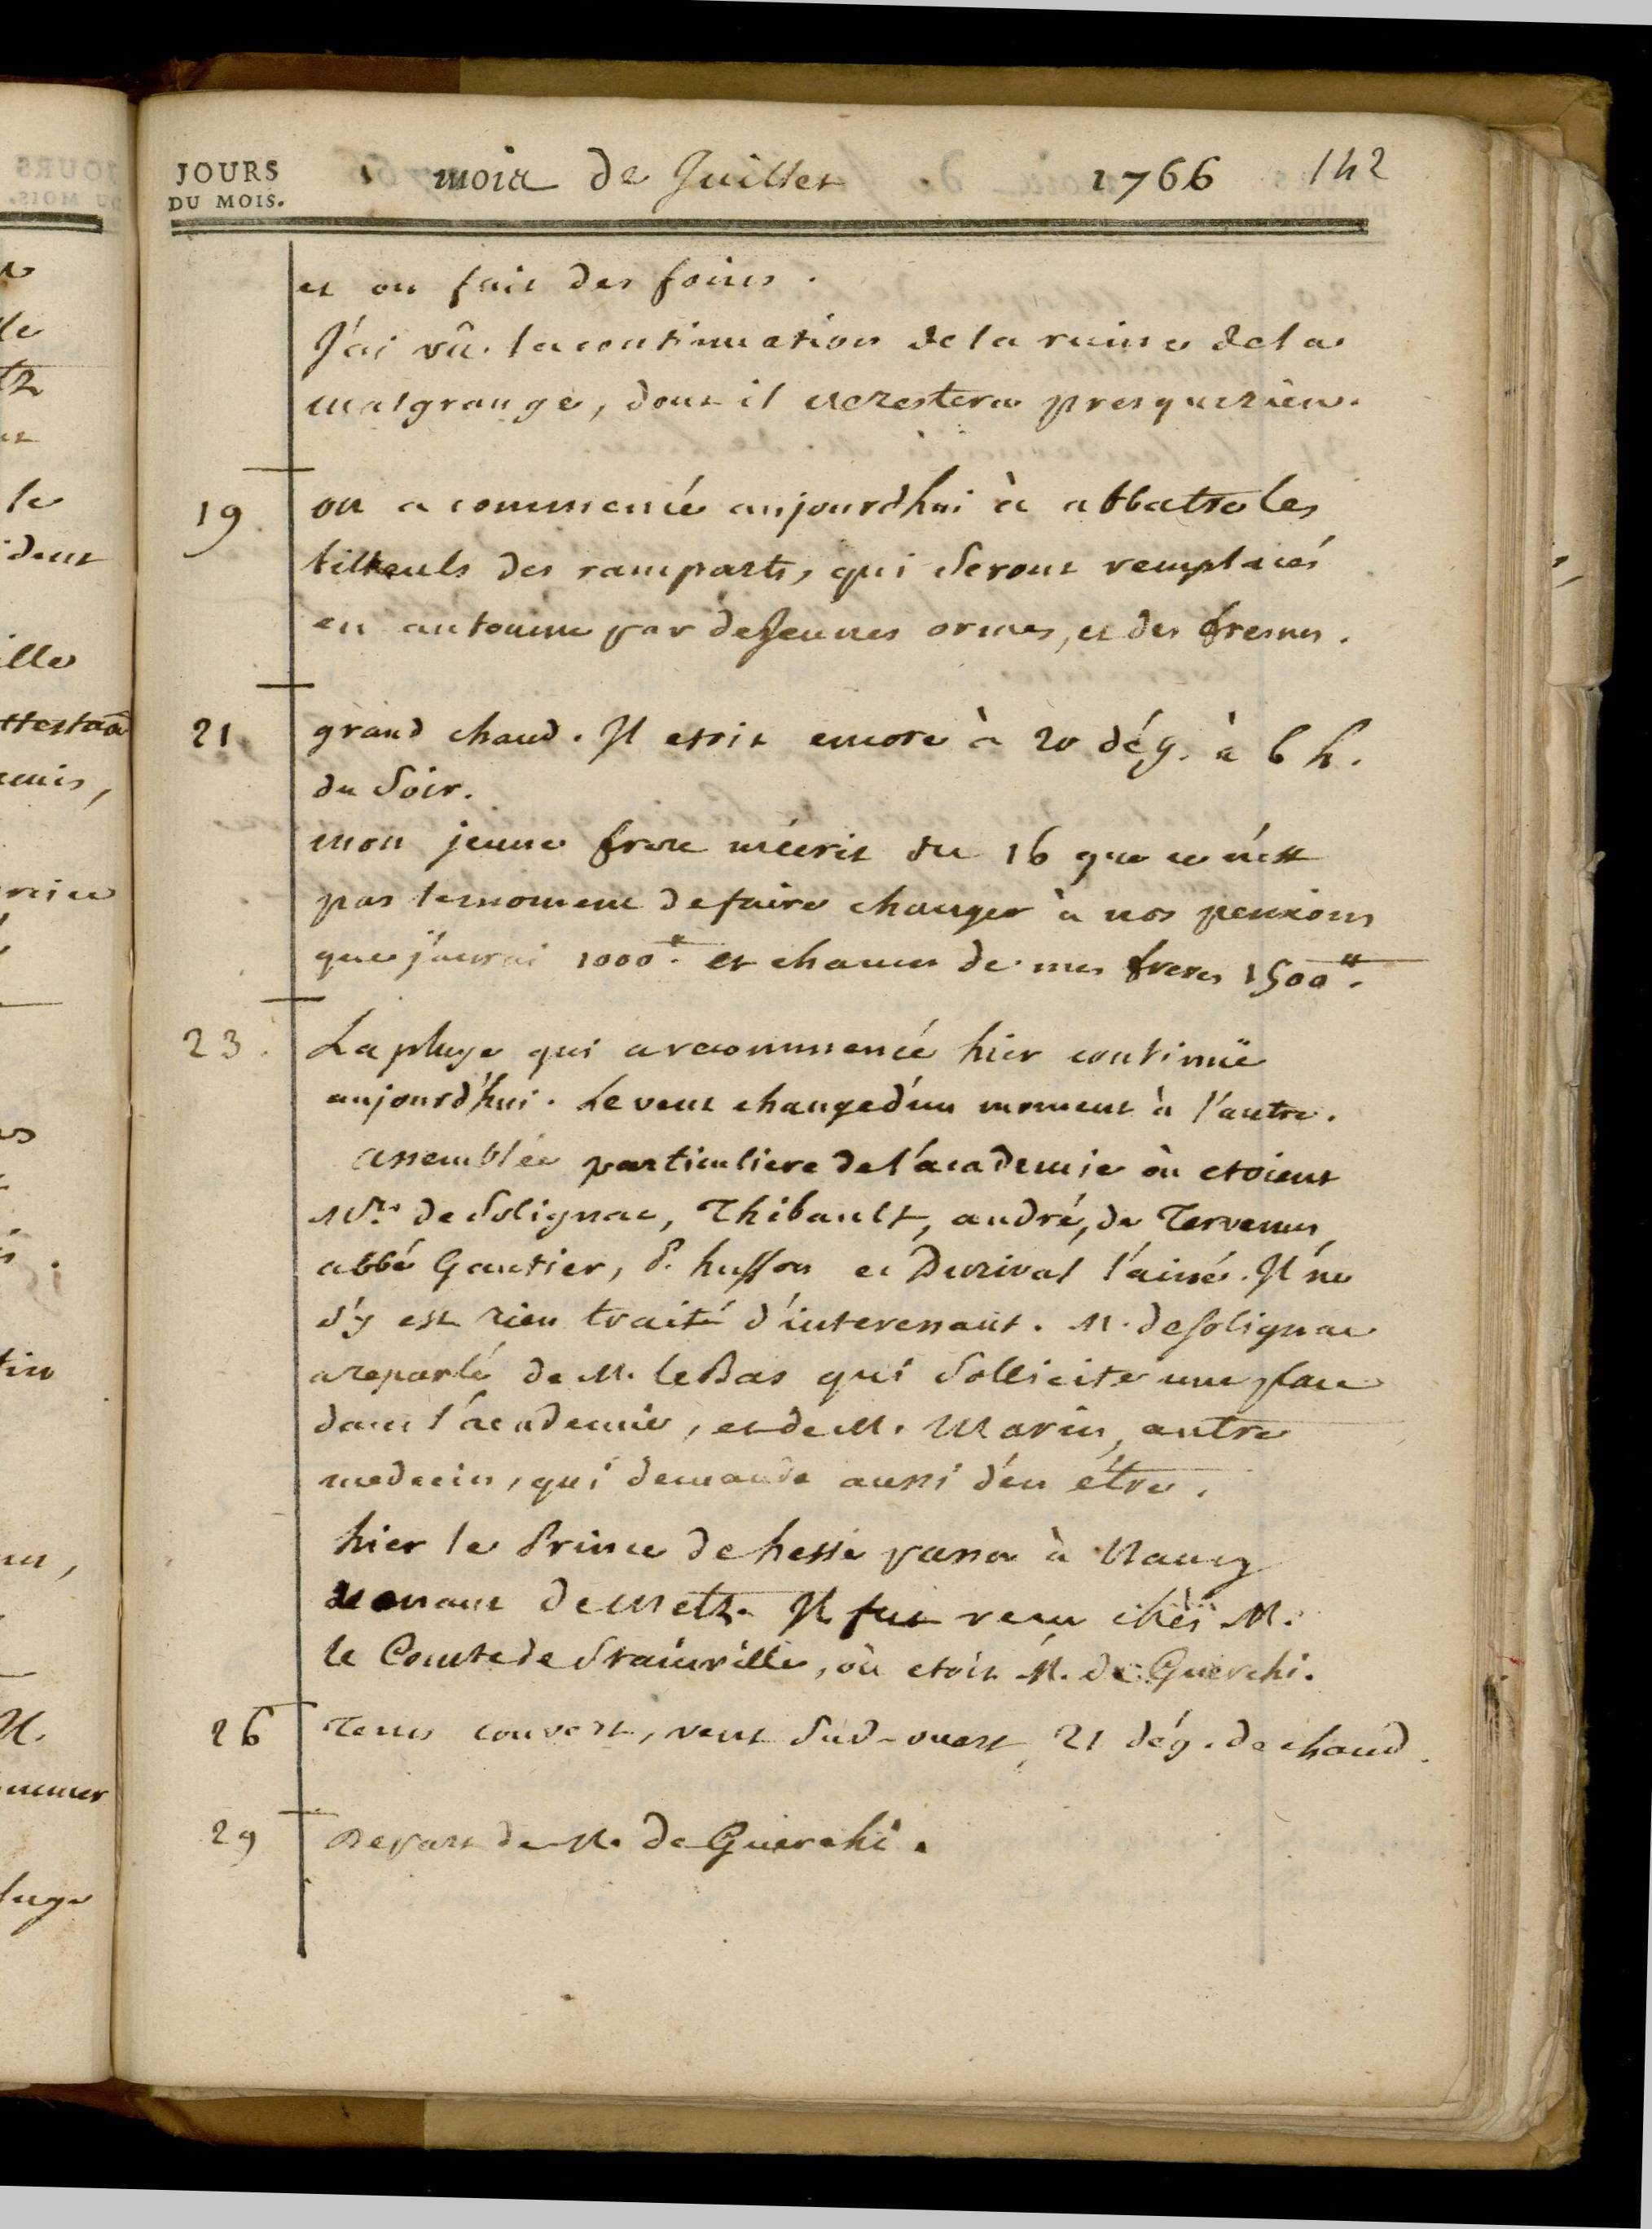 JOURS
DU MOIS.
mois de Juillet 1766 142
et on fait des foins.
J'ai vû la continuation de la ruine de la
malgrange, dont il ne restera presque rien.
19 on a commencé aujourdhui à abbatre les
tilleuls des ramparts, qui seront remplacés
en automne par de jeunes ormes, et des fresnes.
21 grand chaud. Il etoit encore à 20 dég. à 6 h.
du soir.
mon jeune frere m'écrit du 16 que ce n'est
pas le moment de faire changer à nos pensions
que j'aurai 1000# et chacun de mes freres 1500#.
23. La pluye qui a recommencé hier continuë
aujourd'hui. Le vent change d'un moment à l'autre.
assemblée particuliere de l'academie où etoient
Mrs. de Solignac, Thibault, andré, de Tervenus,
abbé Gautier, P. husson et Durival l'ainé. Il ne
s'y est rien traité d'interessant. M. de Solignac
a reparlé de M. le Bas qui sollicite une place
dans l'academie, et de M. Marin, autre
medecin, qui demande aussi d'en être.
hier le Prince de hesse passa à Nancy
venant de Metz. Il fut reçu chés M.
le Comte de Stainville, où etoit M. de Guerchi.
26 Tems couvert, vent sud-ouest, 21 dég. de chaud.
29 Depart de M. de Guerchi.